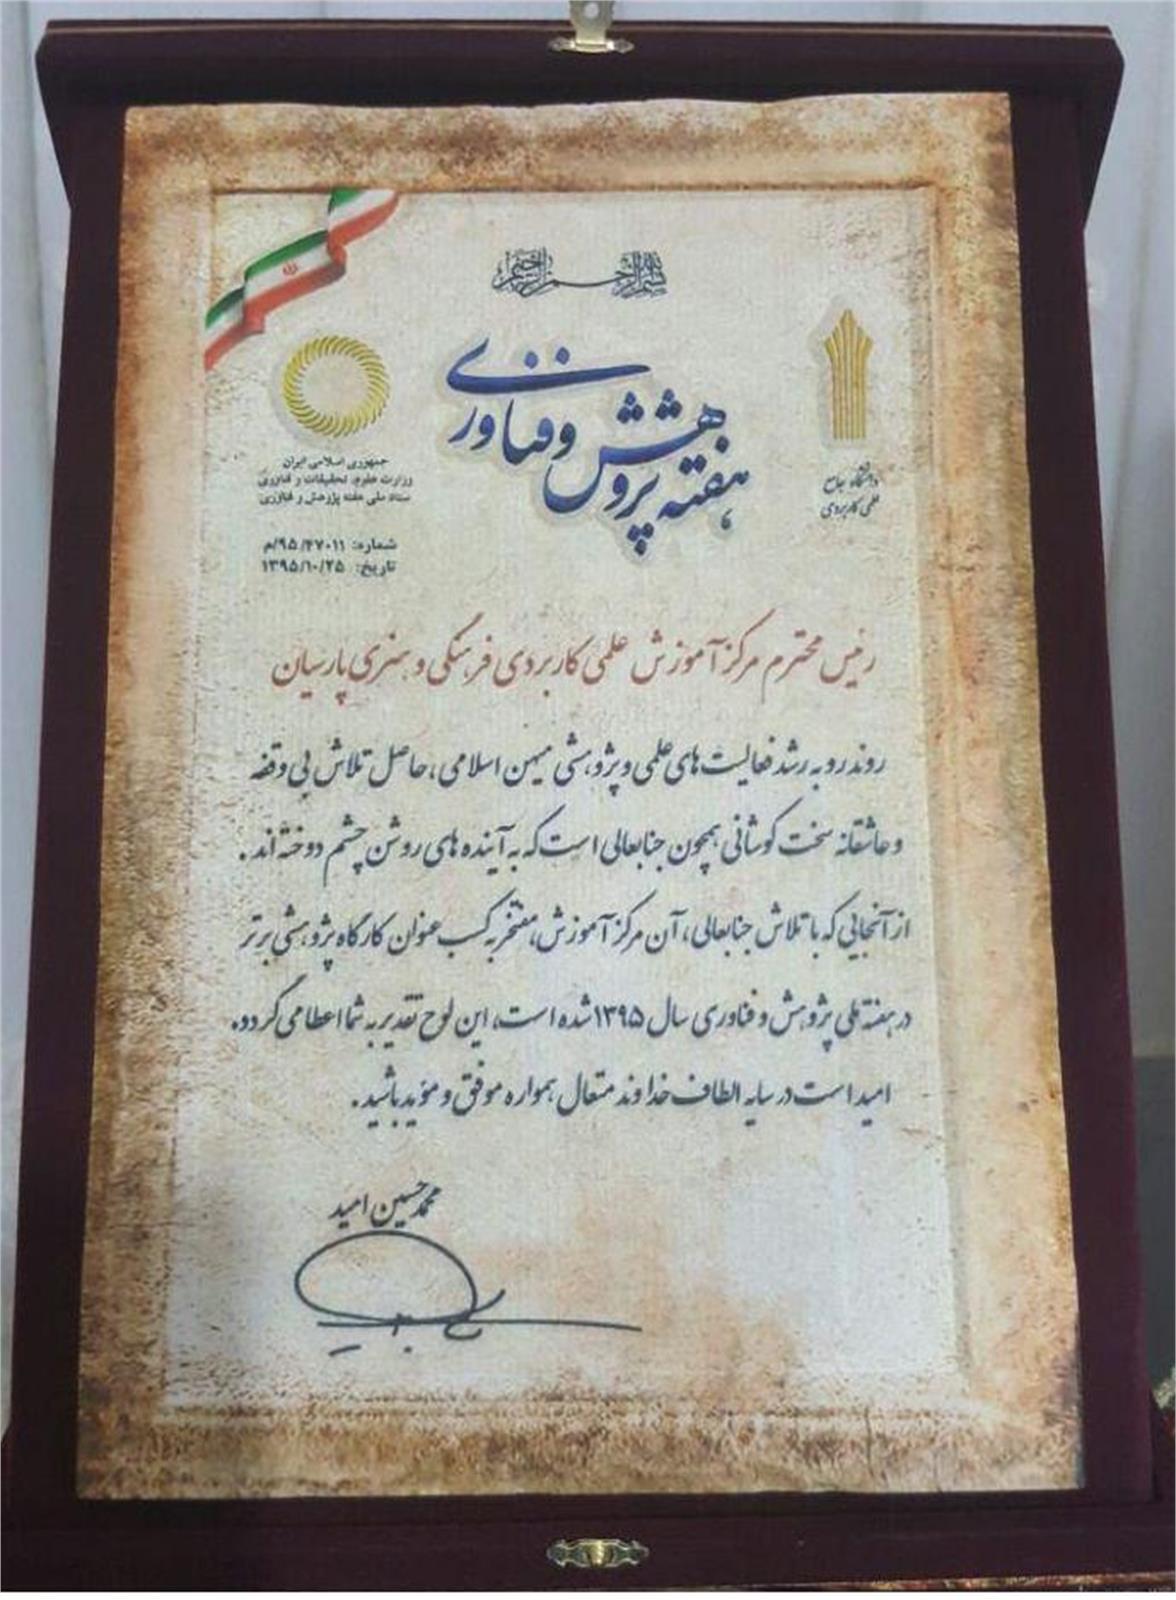 بسم الله الرحمن الرحیم
هفته پژوهش و فناوری
دانشگاه جامع
علمی کاربردی
جمهوری اسلامی ایران
وزارت علوم، تحقیقات و فناوری
ستاد ملی هفته پژوهش و فناوری
شماره: ۹۵/۴۷۰۱۱/م
تاریخ: ۱۳۹۵/۱۰/۲۵
رئیس محترم مرکز آموزش علمی کاربردی فرهنگی و هنری پارسیان
روند رو به رشد فعالیت های علمی و پژوهشی میهن اسلامی، حاصل تلاش بی وقفه
و عاشقانه سخت کوشانی همچون جنابعالی است که به آینده های روشن چشم دوخته اند.
از آنجایی که با تلاش جنابعالی، آن مرکز آموزش، مفتخر به کسب عنوان کارگاه پژوهشی برتر
در هفته ملی پژوهش و فناوری سال ۱۳۹۵ شده است، این لوح تقدیر به شما اعطا می گردد.
امید است در سایه الطاف خداوند متعال همواره موفق و مؤید باشید.
محمد حسین امید